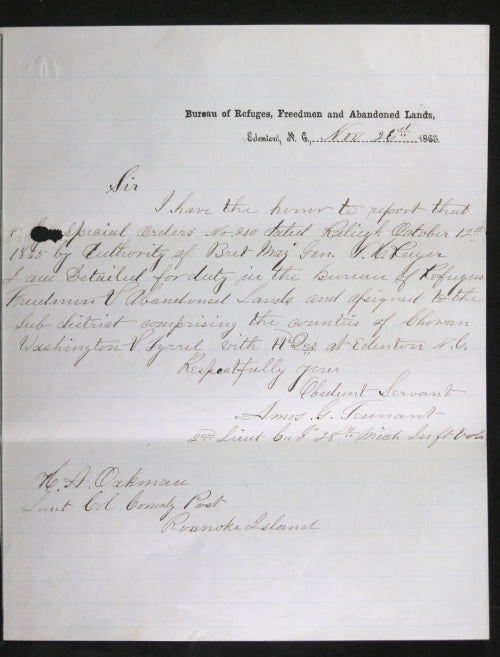 Bureau of Refuges, Freedmen and Abandoned Lands,
Edenton, N. C., Nov 26th 1865
Sir
I have the honor to report that
Special Orders No. 210 dated Raleigh October 12th
1865 by Authority of Bret Maj Gen. T. H. Ruger
I am Detailed for duty in the Bureau of Refugees
Freedmen & Abandoned Lands and asigned to the
Sub district comprising the counties of Chowan
Washington & Tyrrel with Hd Qrs at Edenton N. C.
Respectfully your
Obedient Servant
Amos G. Tennant
2nd Lieut Co 28th Mich Inft Vols
H. A. Oakman
Lieut Col Comdg Post
Roanoke Island